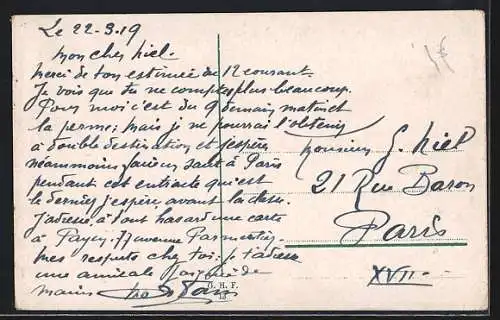 Le 22-3-19
Mon cher Niel.
Merci de ton estimée du 12 courant.
Je vois que tu ne comptes plus beaucoup.
Pour moi c'est du 9 demain matin et
la perme, mais je ne pourrai l'obtenir
à double destination et j'espère
néanmoins faire un saut à Paris
pendant cet entracte qui est
le dernier j'espère, avant la classe.
J'adresse à tout hasard une carte
à 77 avenue Parmentier.
Mes respects chez toi; je t'adresse
une amicale poignée de
mains
G. H. F.
Monsieur G. Niel
21 Rue Baron
Paris
XVII